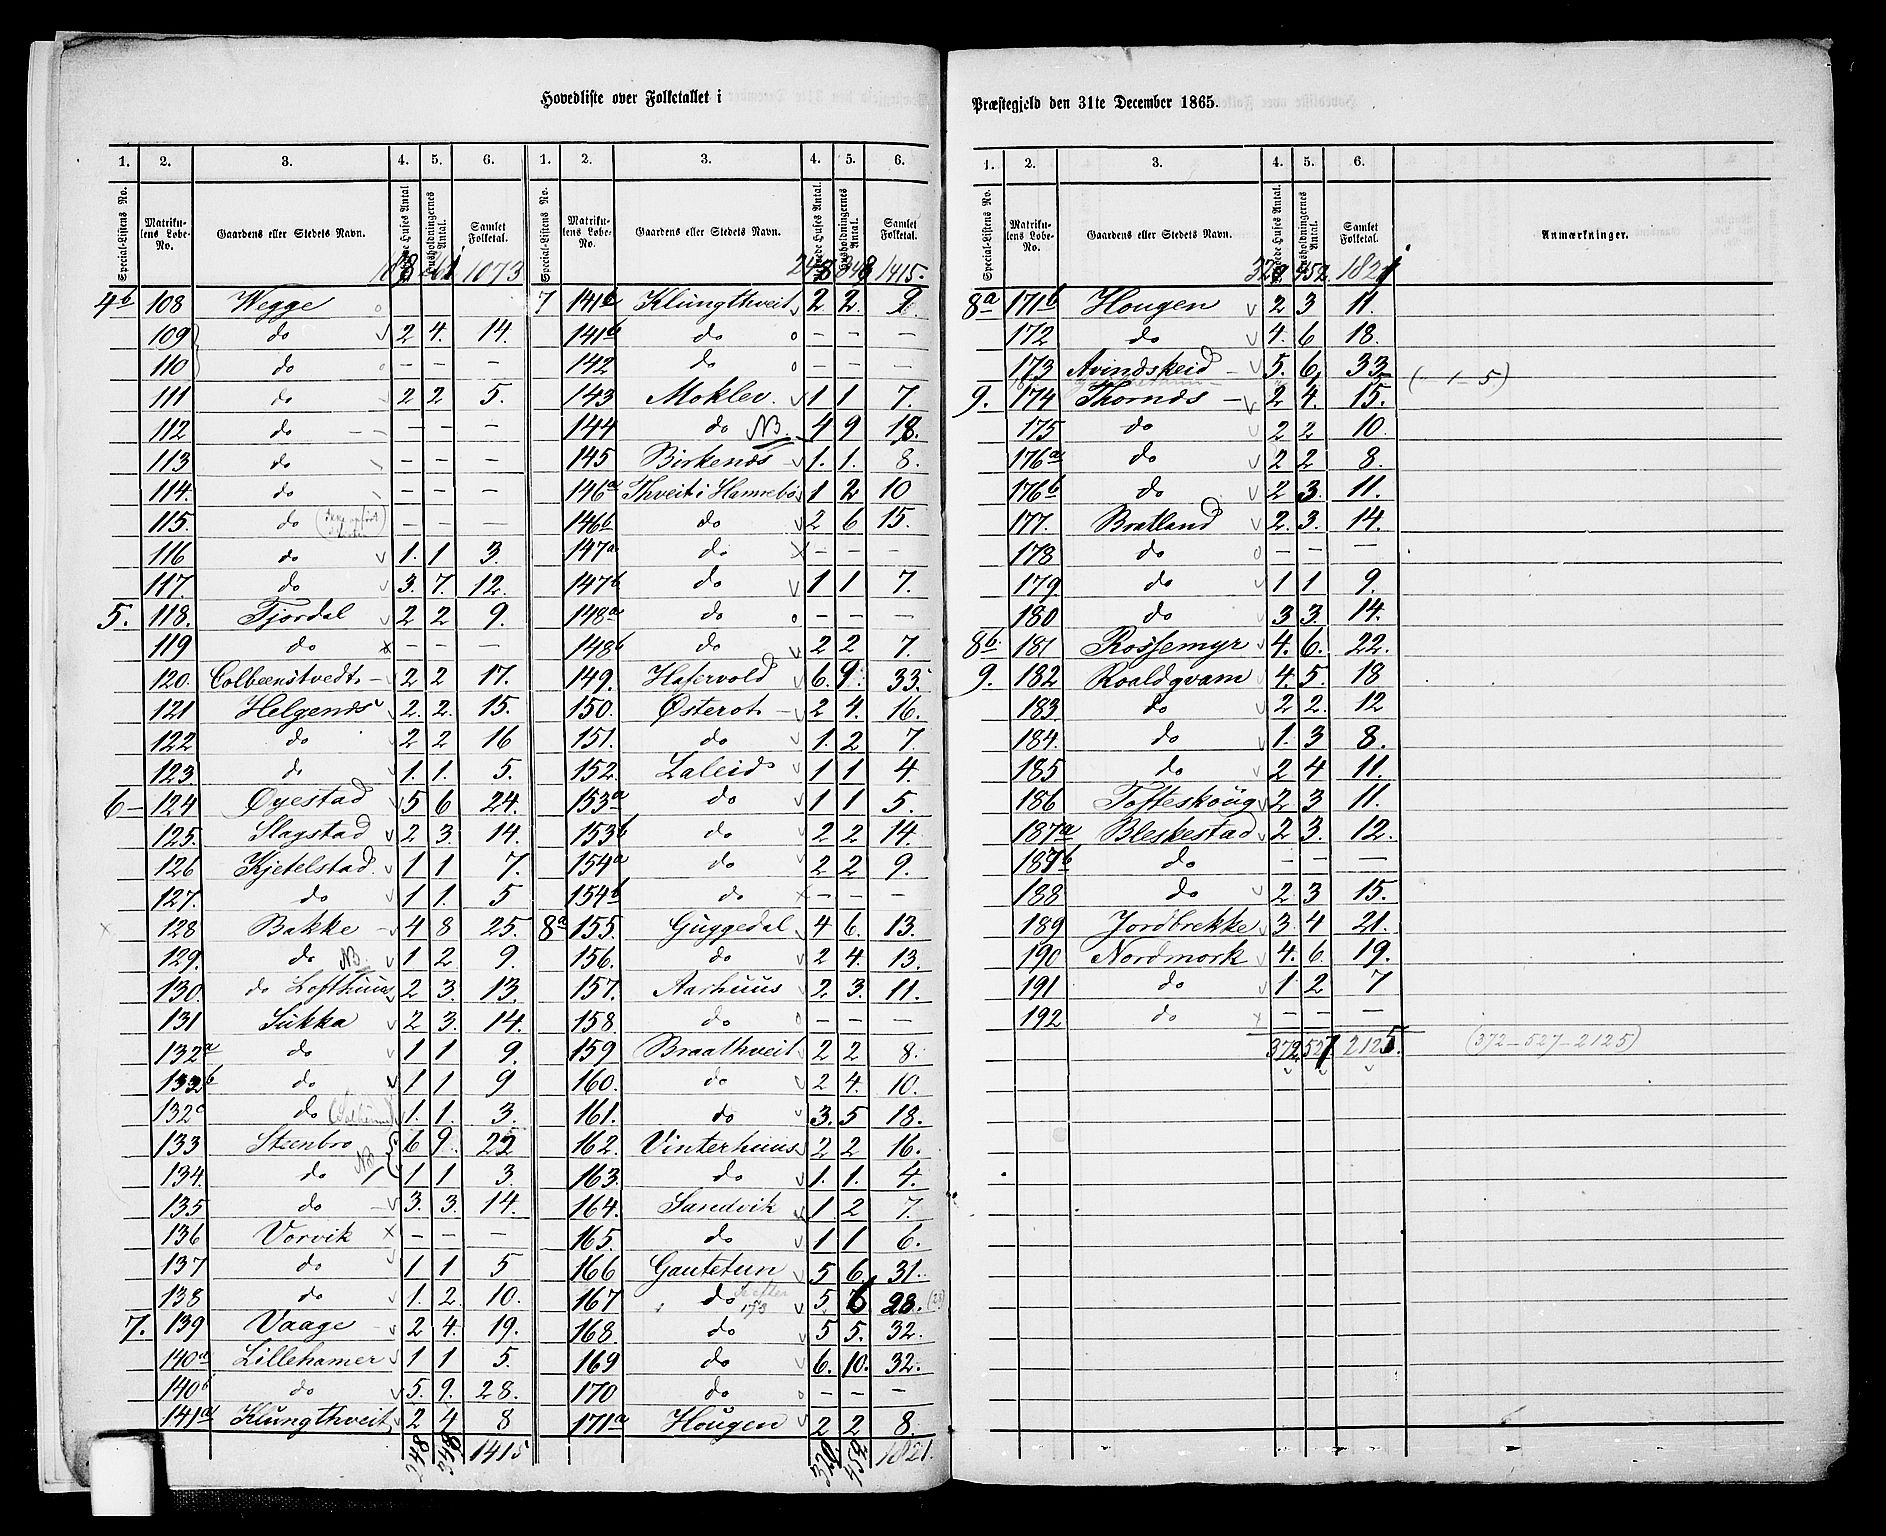 Hovedliste over Folketallet i
1. 2. 3. 4. 5. 6. 1. 2. 3. 4. 5. 6.
Special-Listens No. Matrikulens Løbe-No. Gaardens eller Stedets Navn. Beboede Huses Antal Husholdningernes Antal. Samlet Folketal. Special-Listens No. Matrikulens Løbe-No. Gaardens eller Stedets Navn. Beboede Huses Antal. Husholdningernes Antal. Samlet Folketal.
261 1073
4b 108 Wegge o
109 do v 2 4. 14.
110 do o — — —
111 do v 2 2 5.
112 do — — — —
113 do — — —
114. do — — —
115. do — — —
116 do v 1. 1 3.
117. do v 3. 7. 12.
5. 118. Fjordal v 2 2 9.
119 do x — — —
120. Colbeenstvedt — 2 2 17.
121 Helgenæs v 2. 2. 15.
122 do v 2 2 16
123. do v 1. 1. 5.
6 — 124 Øyestad v 5 6 24.
125. Slagstad v 2 3. 14.
126 Kjetelstad. v 1 1 7.
127. do v 1 1. 5
128 Bakke v 4 8 25.
129. do NB. v 1 2 9.
130. do Lofthuus v 2 3. 13.
131 Sukka v 2 3. 14.
132a do v 1 1 9.
133b do v 1 1 9
132c do v 1. 1. 3.
133 Steenbro 6 9. 25
134. do NB 1 1 3.
135 do — v 3. 3. 14.
136 Vorvik x — — —
137 do v 1 1 5
138 do v 1. 2. 10.
7. 139 Vaage v 2 4. 19.
140a Lillehamer v 1 1 5.
140b do v 5. 9. 28.
141a Klungthveit v 2 4 8
248 348 1415
248 348 1415.
7 141b Klungthveit v 2 2. 9.
141b do o — — —
142 do o — — —
143 Moklev. v 1 1 7.
144 do NB. 4 9 18.
145 Birkenæs v 1. 1. 8.
146a Thveit i Hannebo 1 2 10
146b do v 2 6 15.
147a do x — — —
147b do v 1 1 7.
148a do o — — —
148b do v 2 2 7.
149. Hatervold v 6. 9. 33.
150. Østerot — 2 4. 16.
151. do v 1. 2 7.
152. Laleid v 1 1 4.
153a do v 1 1 5.
153b do v 2 2 14.
154a do v 2 2 9.
154b do x — — —
8a 155. Guggedal v 4 6. 13.
156. do v 2 4. 13.
157. Aarhuus v 2 3. 11.
158. do o — — —
159 Braathveit v 2 2 8.
160. do v 2 4. 10.
161. do v 3. 5 18.
162. Vinterhuus v 2 2 16.
163. do v 1. 1. 4.
164. Sandvik v 1 2 7.
165. do v 1 1 6.
166 Gautetun v 5 6 31.
167 do v 5. 6 28. (28)
168. do v 5 5. 32.
169 do v 6. 10. 32.
170 do o — — —
171a Hougen v 2 2 8.
320 452 1821.
Præstegjeld den 31te December 1865.
1. 2. 3. 4. 5. 6.
Special-Listens No. Matrikulens Løbe-No. Gaardens eller Stedets Navn. Beboede Huses Antal. Husholdningernes Antal. Samlet Folketal. Anmærkninger.
452 1821
8a 171b Hougen v 2 3 11.
172 do v 4. 6 18.
173 Avindskeid v 5. 6 33 (— 1 — 5)
9. 174 Thornæs — v 2 4. 15.
175 do v 2 2 10.
176a do v 2 2 8.
176b do v 2 3. 11.
177. Bratland v 2. 3. 14.
178 do o — — —
179 do v 1 1 9.
180 do v 3 3. 14.
8b. 181 Rossemyr v 4. 6. 22.
9. 182 Roaldqvam v 4. 5. 18
183. do v 2 2. 12
184. do v 1. 3 8.
185 do v 2 4 11.
186 Tofteskoug v 2 3 11.
187a Bleskestad v 2 3. 12.
187b do — — —
188 do v 2 3 15.
189 Jordbrekke v 3. 4 21.
190 Nordmork v 4. 6. 19.
191 do v 1 2 7
192 do x — — —
372. 527 2125. (372 — 527 — 2125)